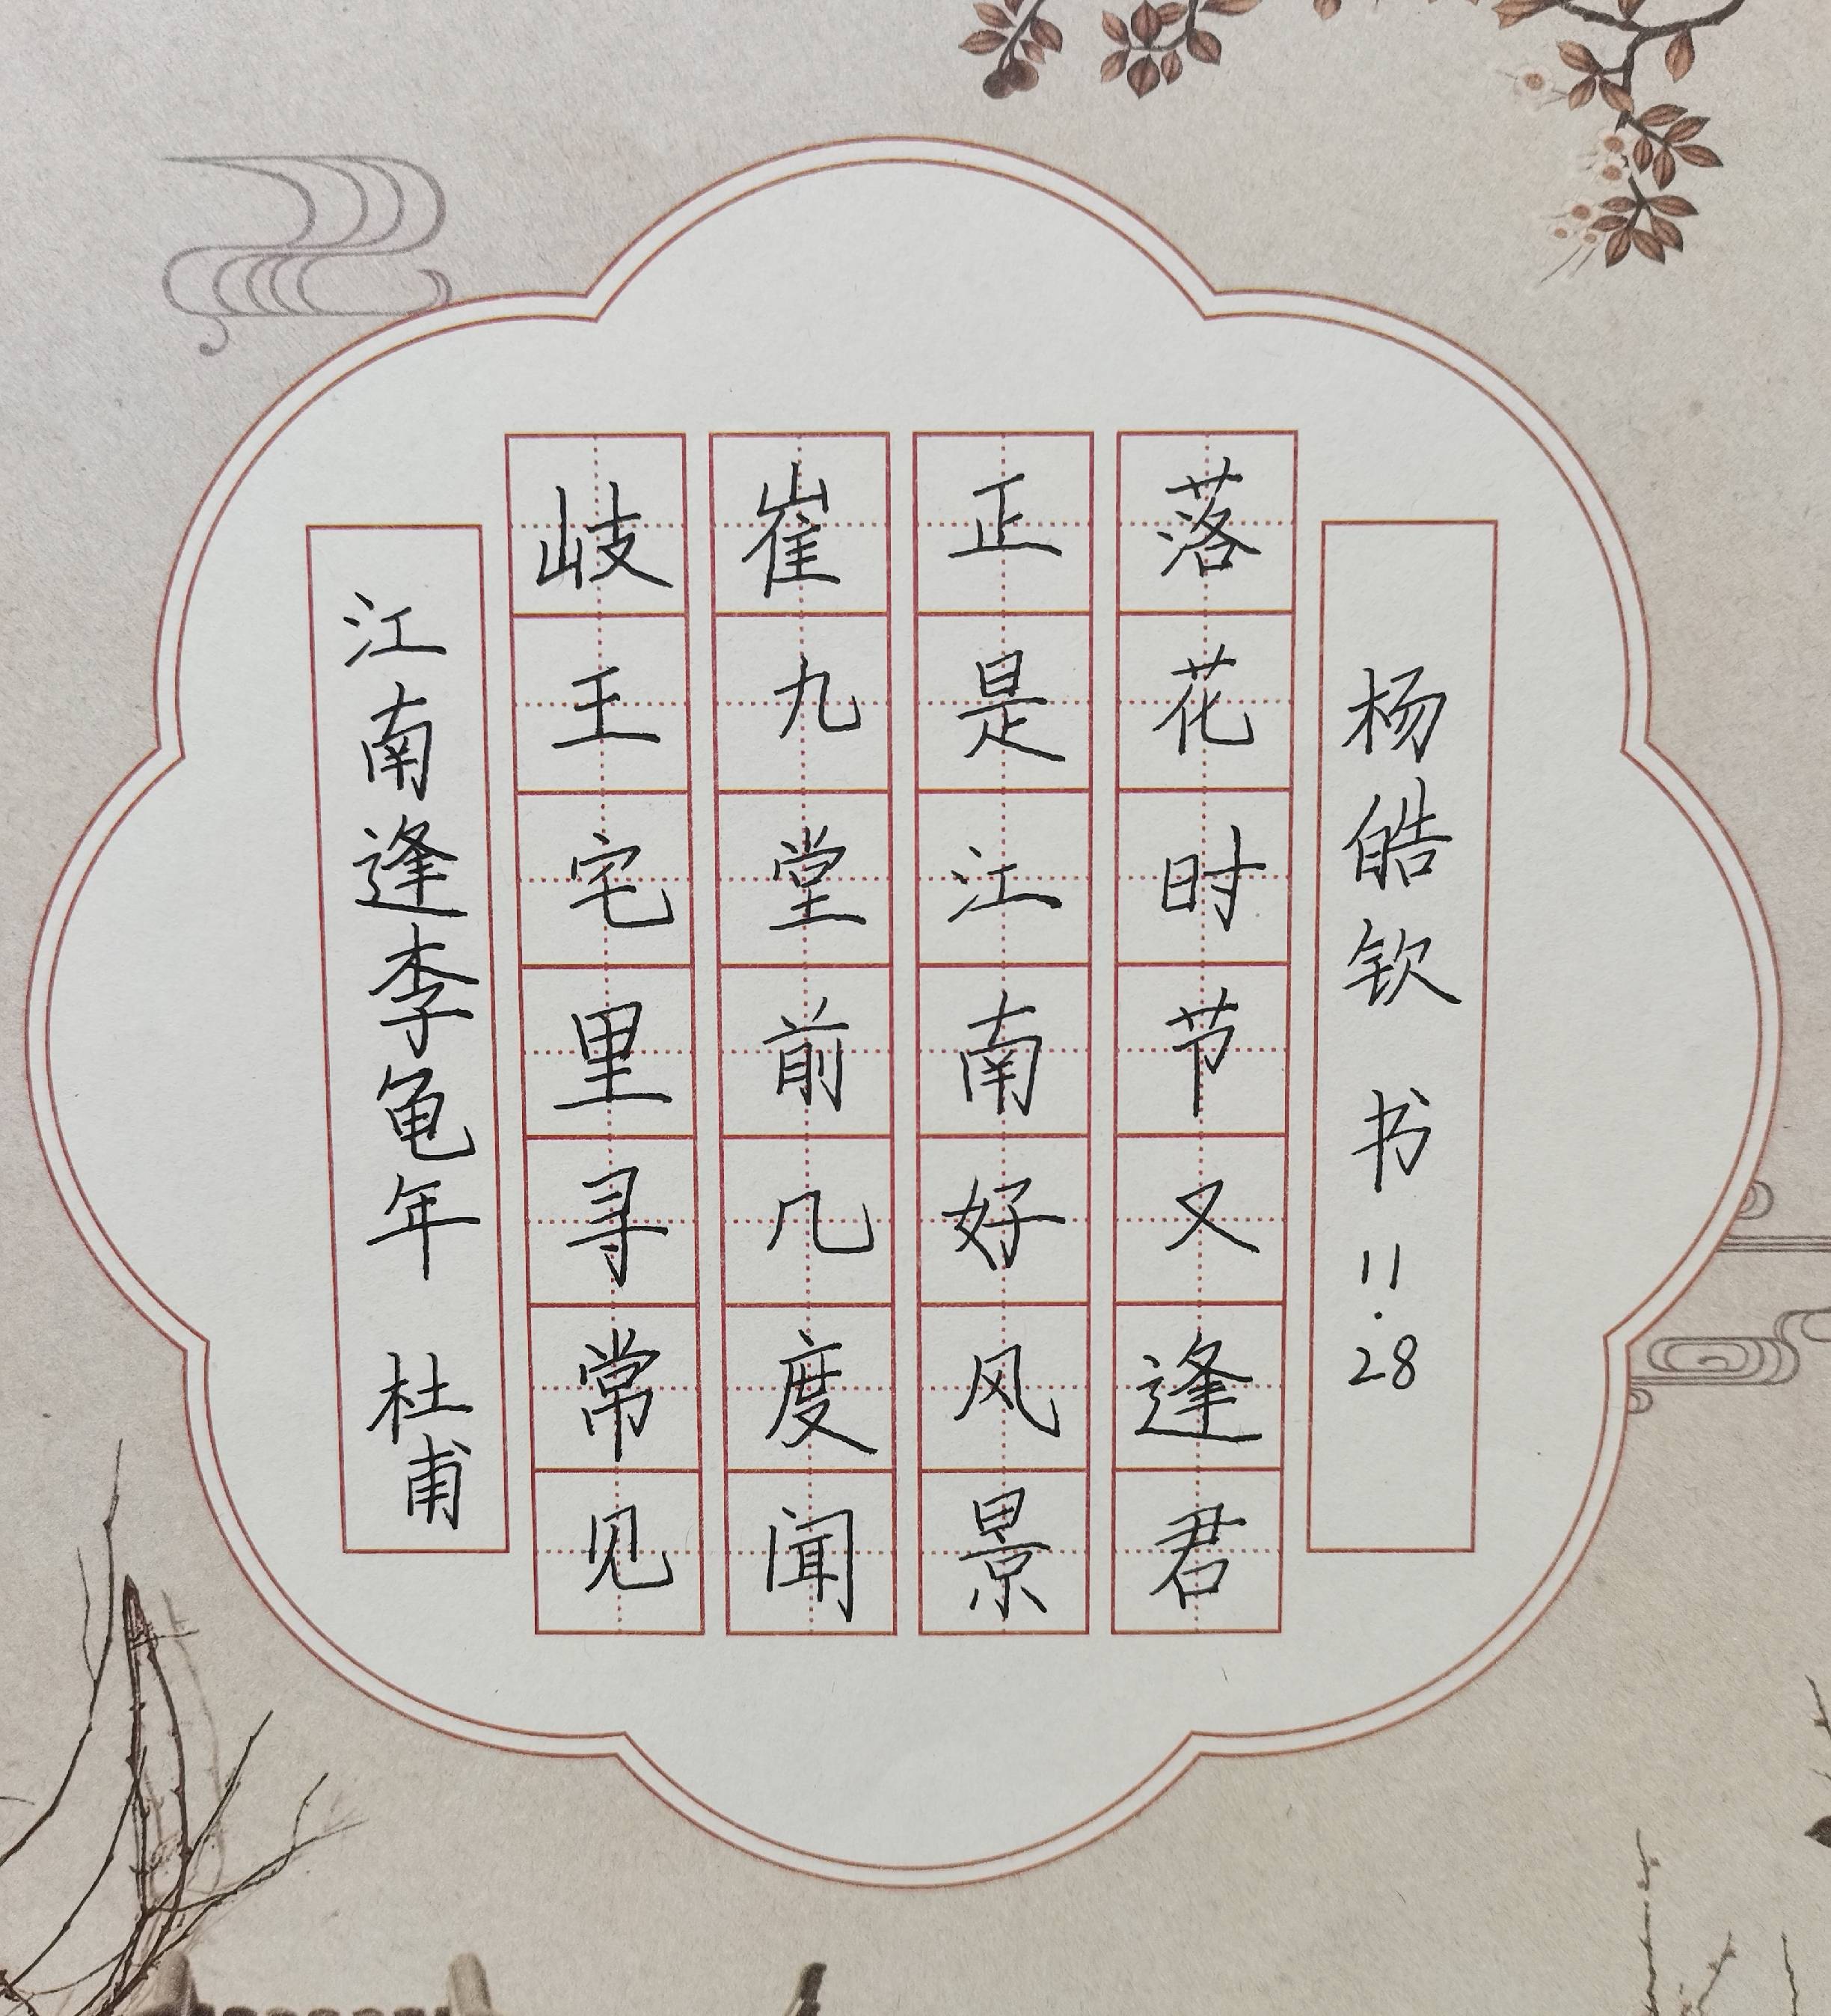 江南逢李龟年 杜甫
岐王宅里寻常见
崔九堂前几度闻
正是江南好风景
落花时节又逢君
杨皓钦 书 11.28